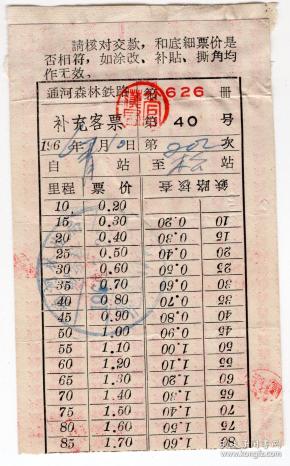 請核对交款，和底細票价是
否相符，如涂改、补貼、撕角均
作无效。
通河森林鉄路 第 626 冊
补充客票 第 40 号
196 年 月10日第 202 次
自 站 至 站
里程 票价 鉄路核查
10 0.20
15 0.30 0.20 10
20 0.40 0.30 15
25 0.50 0.40 20
30 0.60 0.50 25
35 0.70 0.60 30
40 0.80 0.70 35
45 0.90 0.80 40
50 1.00 0.90 45
55 1.10 1.00 50
60 1.20 1.10 55
65 1.30 1.20 60
70 1.40 1.30 65
75 1.50 1.40 70
80 1.60 1.50 75
85 1.70 1.60 80